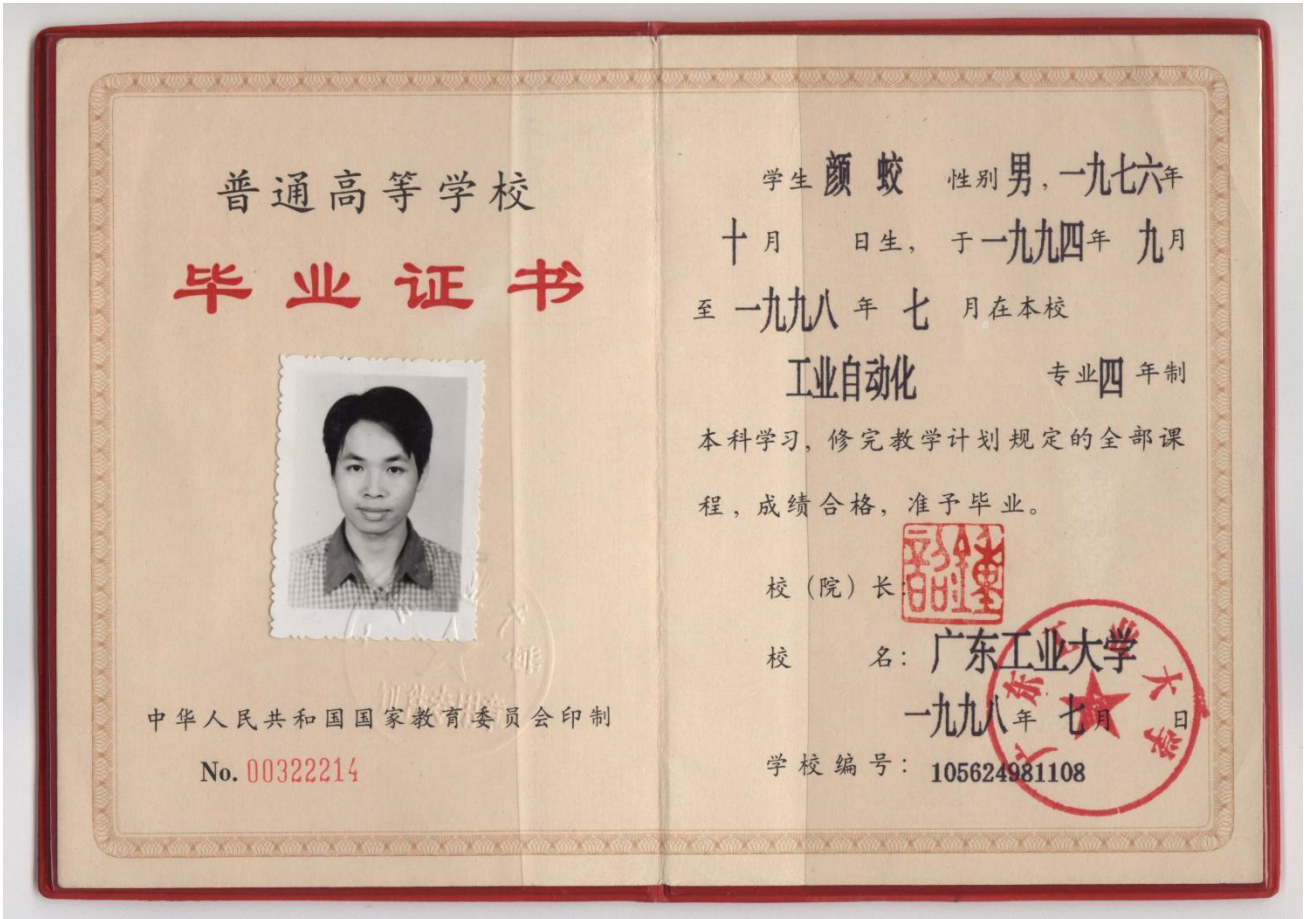 普通高等学校
毕业证书
中华人民共和国国家教育委员会印制
No. 00322214
学生 颜 蛟 性别 男，一九七六年
十月 日生，于一九九四年 九月
至 一九九八 年 七 月在本校
工业自动化 专业四年制
本科学习，修完教学计划规定的全部课
程，成绩合格，准予毕业。
校（院）长：
校 名：广东工业大学
一九九八年 七月 日
学校编号：105624981108
广东工业大学